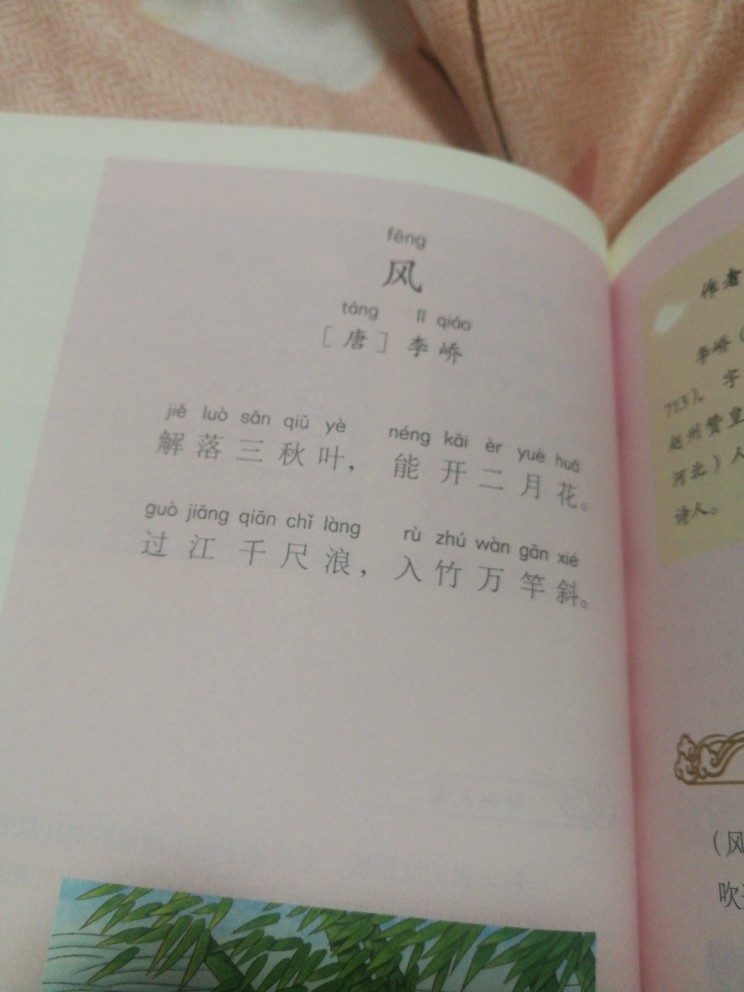 fēng
风
táng lǐ qiáo
［唐］李峤
jiě luò sān qiū yè néng kāi èr yuè huā
解落三秋叶，能开二月花。
guò jiāng qiān chǐ làng rù zhú wàn gān xié
过江千尺浪，入竹万竿斜。
作者
李峤（
713）。字
赵州赞皇
河北）人
诗人。
（风
吹